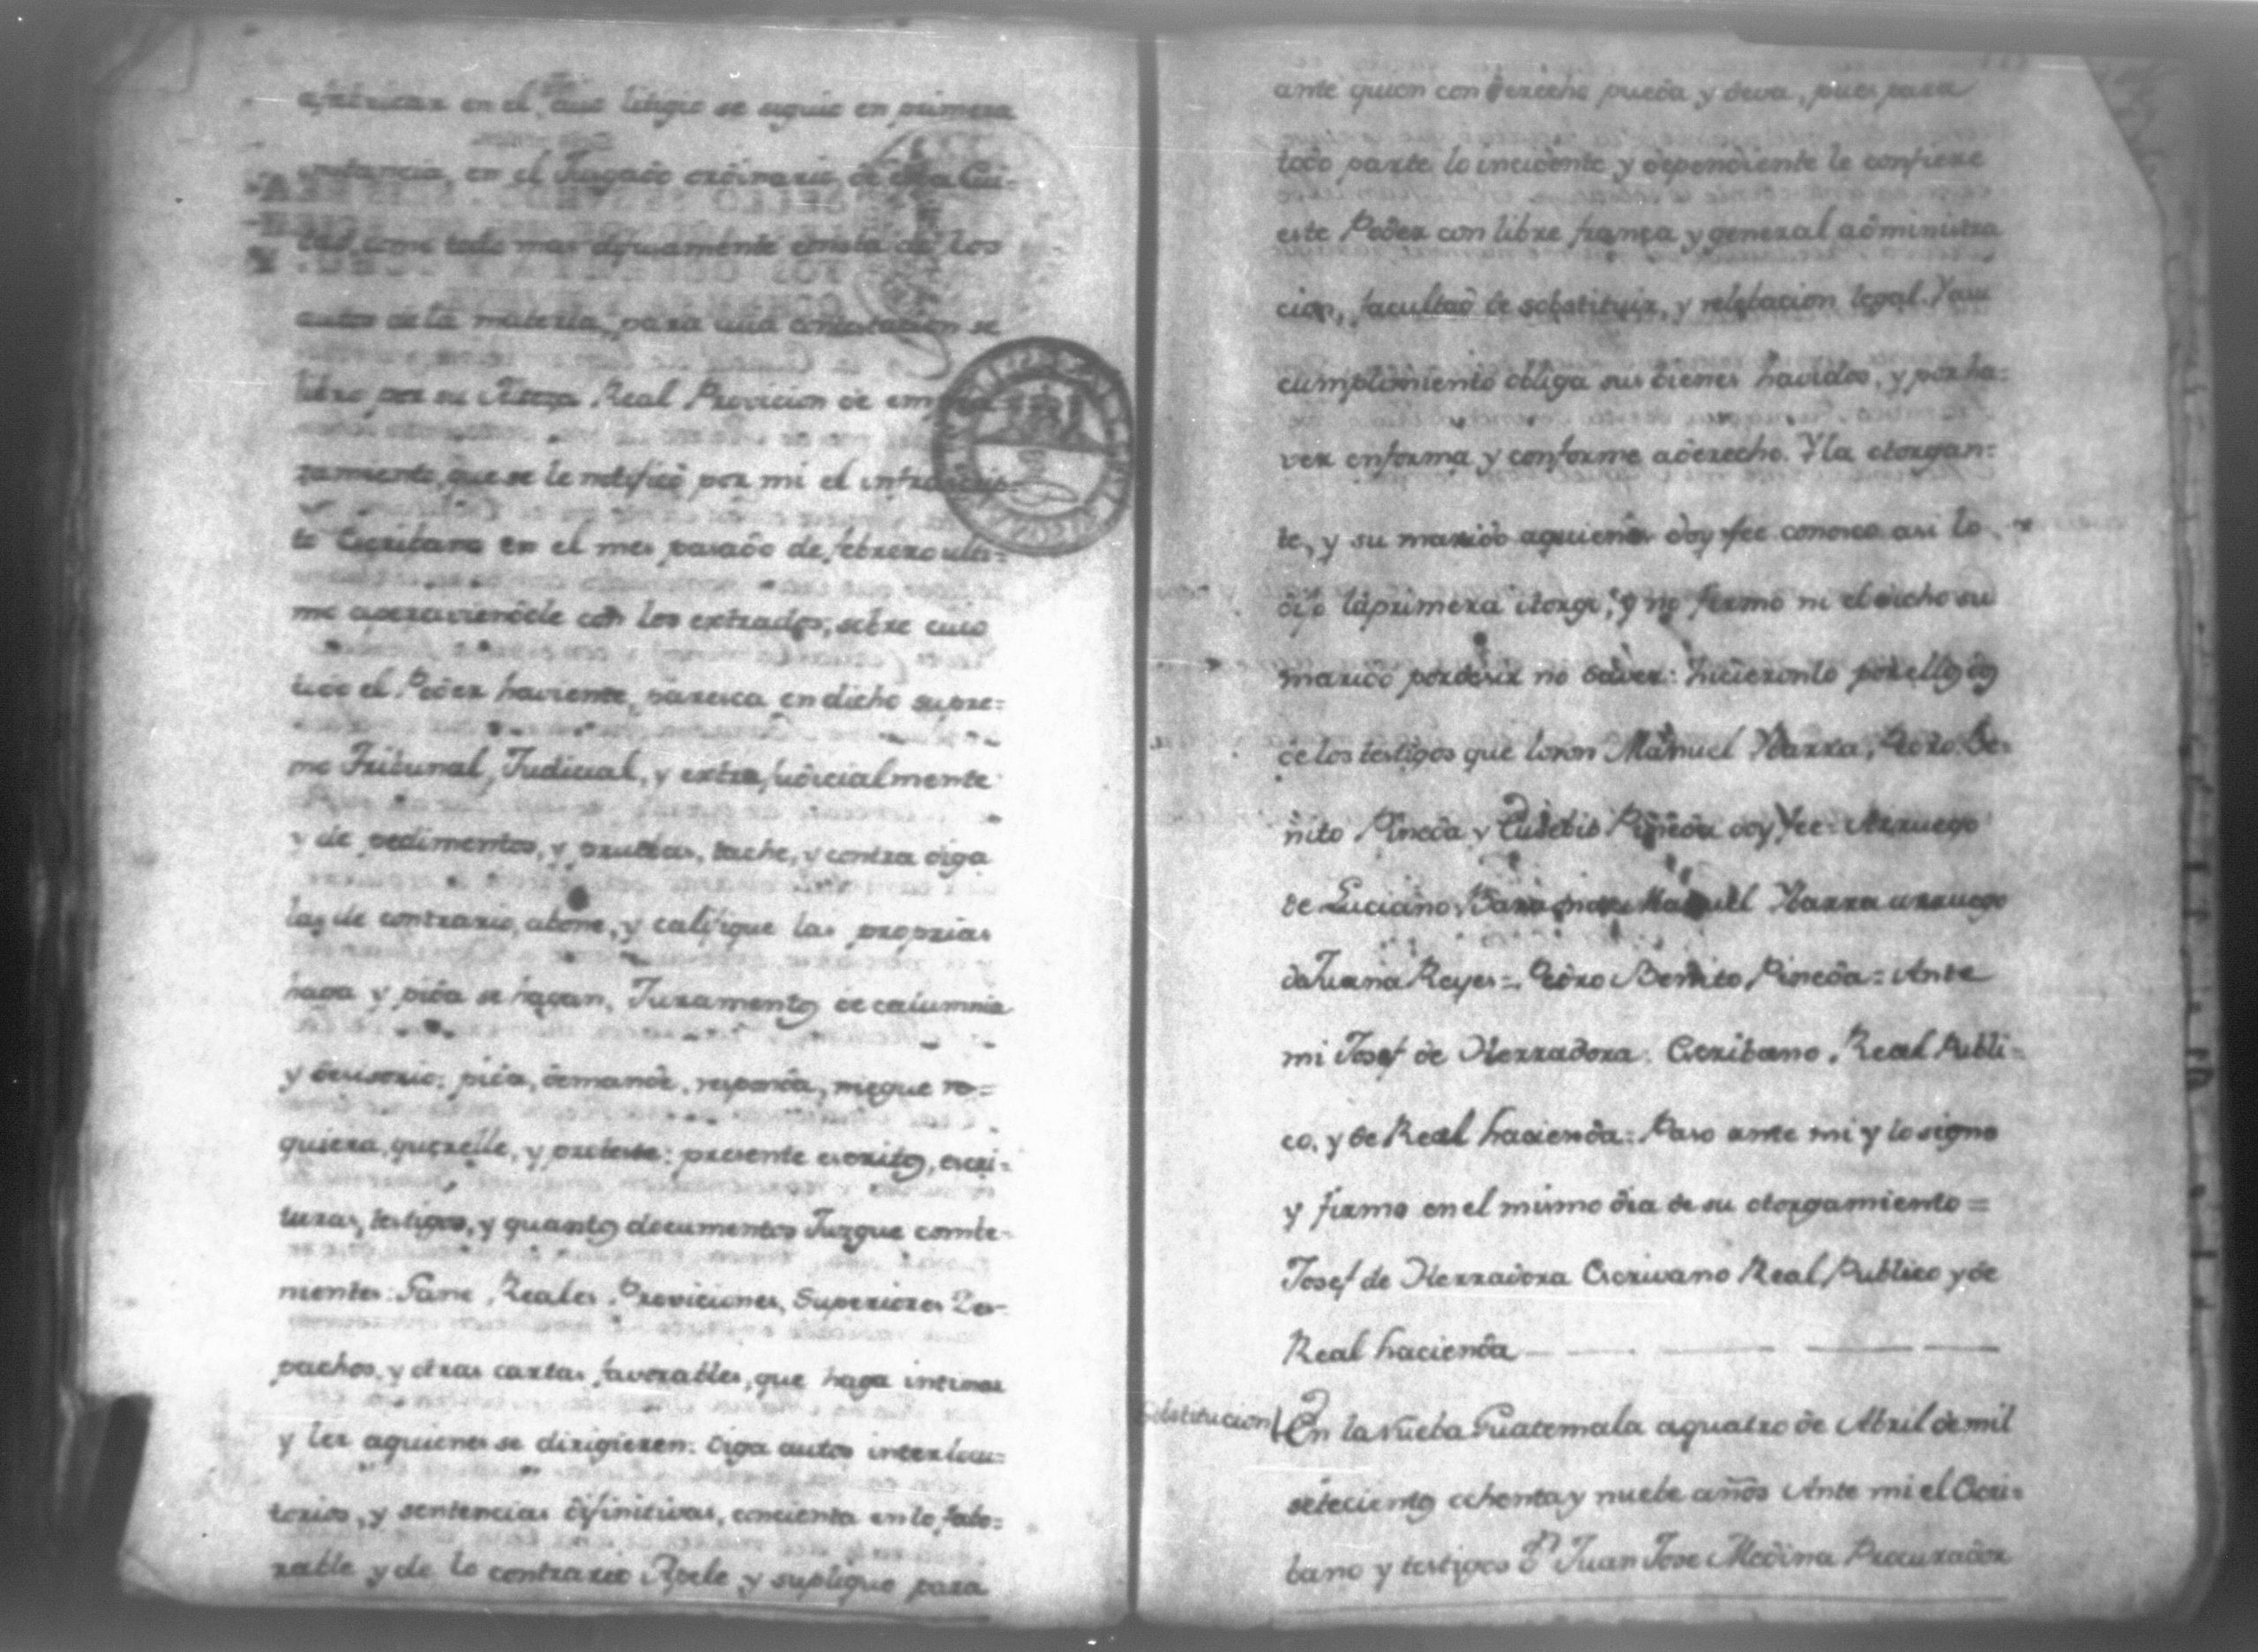 en el que litigio se siguio en primera
instancia, en el Jusgado ordinario de esta Ciu-
dad, como todo mas difusamente consta de los
autos de la materia, para cuia contestacion se
libro por su Alteza Real Provicion de empla-
zamiento, que se le notificó por mi el infraescrip-
to Escribano en el mes pasado de febrero ulti-
mo aperciviendole con los extrados, sobre cuio
tudo el Poder haviente, paresca en dicho supre-
mo Tribunal, Judicial, y extra judicialmente
y de pedimentos, y pruebas, tache, y contra diga
las de contrario, abone, y califique las proprias
haga y pida se hagan, Juramentos de calumnia
y desisorio; pida, demande, responda, niegue re-
quiera, querelle, y proteste: presente escritos, escri-
turas, testigos, y quantos documentos Jusgue combe-
nientes: Gane, Reales, Proviciones, Superiores Des-
pachos, y otras cartas favorables, que haga intimar
y leer aquienes se dirigieren: Oiga autos interlocu-
torios, y sentencias difinitivas, concienta en lo fabo-
rable y de lo contrario Apele y suplique para
ante quien con derecho pueda y deva, pues para
todo parte lo incidente y dependiente le confiere
este Poder con libre franca y general administra
cion, facultad de sobstituir, y relebacion legal. Y asu
cumplimiento obliga sus bienes havidos, y por ha-
ver enforma y conforme aderecho. Y la otorgan-
te, y su marido aquienes doy fee conosco asi lo
dijo la primera otorgó, y no firmo ni el dicho su
marido por desir no saver: hicieronlo por ellos dos
de los testigos que loron Manuel Ybarra, Pedro Be-
nito Pineda y Eusebio Pineda doy fee: Arruego
de Luciano Manuel Ybarra arruego
de Juana Reyes = Pedro Benito Pineda = Ante
mi Josef de Herradora. Escribano Real Publi-
co, y de Real hacienda: Paso ante mi y lo signo
y firmo en el mismo dia de su otorgamiento =
Josef de Herradora Escrivano Real Publico y de
Real hacienda
Sobstitucion
En la Nueba Guatemala aquatro de Abril de mil
setecientos ochenta y nuebe años Ante mi el Escri-
bano y testigos Dn Juan Jose Medina Procurador